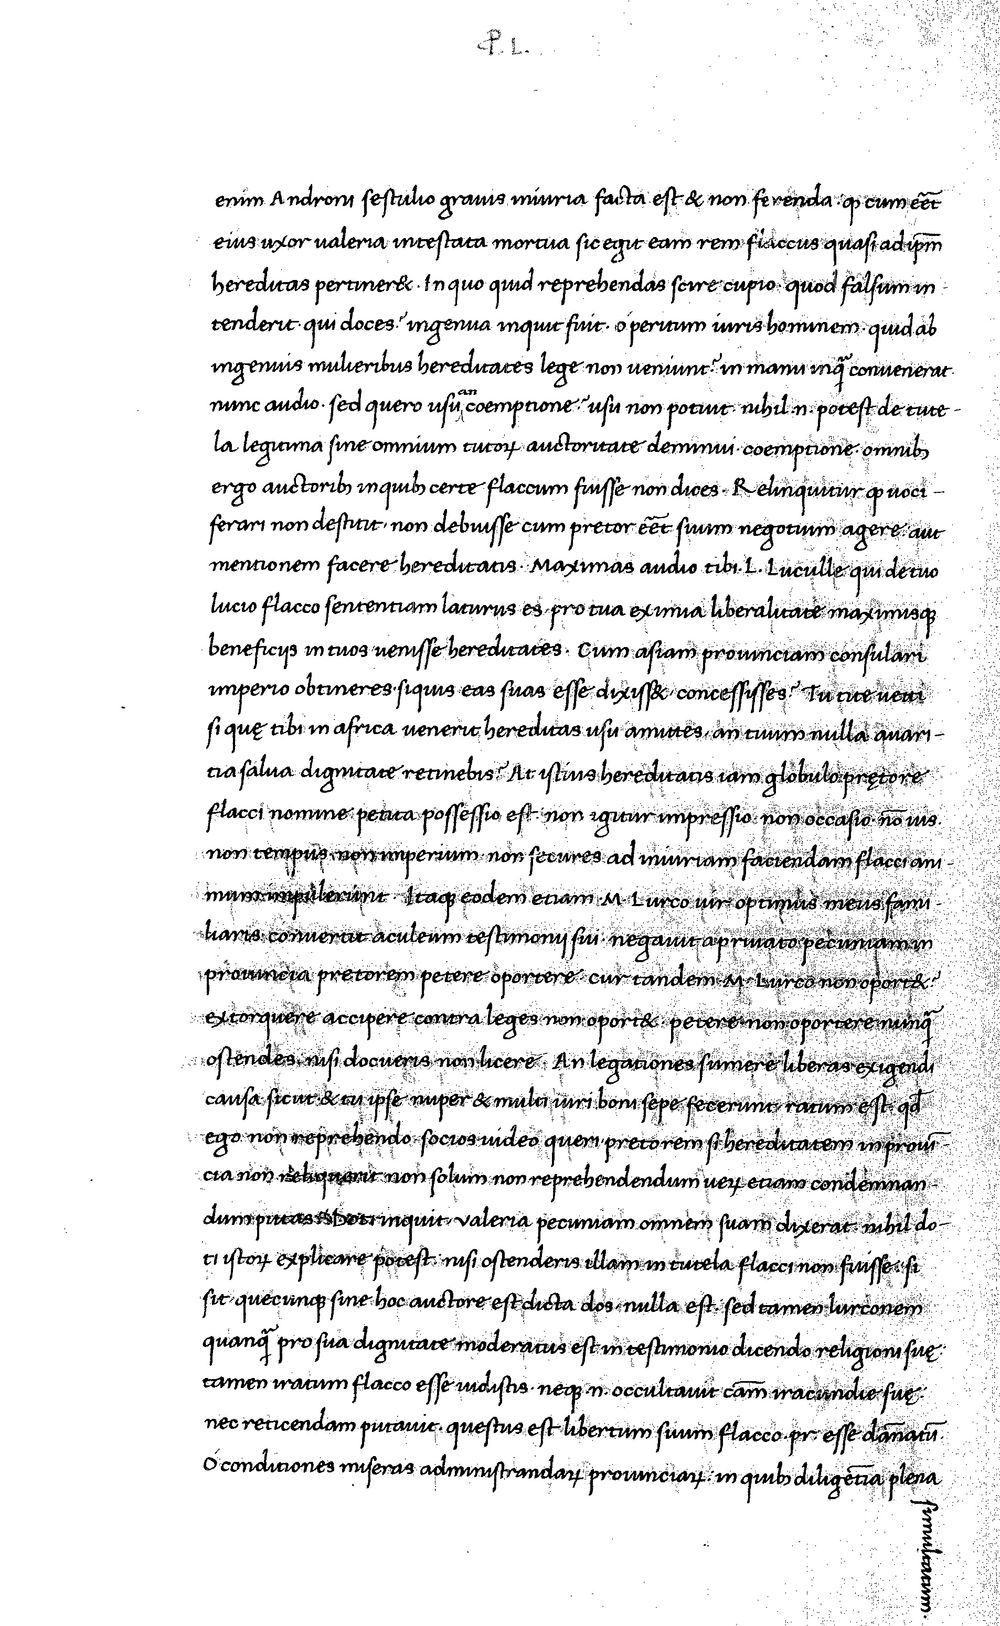 P. L.
enim Androni sestulio grauis iniuria facta est & non ferenda · ꝙ cum eēt
eius uxor ualeria intestata mortua sic egit eam rem flaccus quasi ad ipm̄
hereditas pertiner& · In quo quid reprehendas scire cupio · quod falsum in-
tenderit · qui doces? ingenua inquit fuit · o peritum iuris hominem · quid ab
ingenuis mulieribus hereditates lege non ueniunt? in manū inq̄ conuenerat
nunc audio · sed quero usu an coemptione? usu non potuit · nihil .n. potest de tute-
la legitima sine omnium tutoꝝ auctoritate deminui · coemptione · omnibꝫ
ergo auctoribꝫ in quibꝫ certe flaccum fuisse non dices · Relinquitur ꝙ uoci-
ferari non destitit · non debuisse cum pretor eēt suum negotium agere · aut
mentionem facere hereditatis · Maximas audio tibi · L · Luculle qui de tuo
lucio flacco sententiam laturus es · pro tua eximia liberalitate maximisqꝫ
beneficijs in tuos uenisse hereditates · Cum asiam prouinciam consulari
imperio obtineres · siquis eas suas esse dixiss& concessisses? Tu tite uetti
si quę tibi in africa uenerit hereditas usu amittes · an tuum nulla auari-
tia salua dignitate retinebis? At istius hereditatis iam globulo prętore
flacci nomine petita possessio est · non igitur impressio · non occasio · nō uis ·
non tempus · non imperium · non secures ad iniuriam faciendam flacci ani-
mum impulerunt · Itaqꝫ eodem etiam M · Lurco uir optimus meus fami-
liaris conuertit aculeum testimonij sui · negauit a priuato pecuniam in
prouincia pretorem petere oportere · cur tandem M · Lurco non oport&?
extorquere accipere contra leges non oport& · petere non oportere nunq̄
ostendes · nisi docueris non licere · An legationes sumere liberas exigendi
causa sicut & tu ipse nuper & multi uiri boni sepe fecerunt · ratum est · qd̄
ego non reprehendo · socios uideo queri pretorem si hereditatem in prouī-
cia non reliquerit non solum non reprehendendum ueꝝ etiam condemnan-
dum putas · Doti inquit · Valeria pecuniam omnem suam dixerat · nihil do-
ti istoꝝ explicare potest · nisi ostenderis illam in tutela flacci non fuisse · si
sit · quecunqꝫ sine hoc auctore est dicta dos · nulla est · sed tamen lurconem
quanq̄ pro sua dignitate moderatus est in testimonio dicendo religioni suę
tamen iratum flacco esse uidistis · neqꝫ .n. occultauit cam̄ iracundie suę
nec reticendam putauit · questus est libertum suum flacco · pr · esse dānatū ·
O conditiones miseras administrandaꝝ prouinciaꝝ · in quibꝫ diligētia plena
simultatum ·